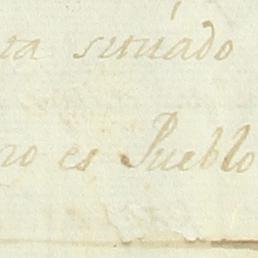 ta situado
no es Pueblo